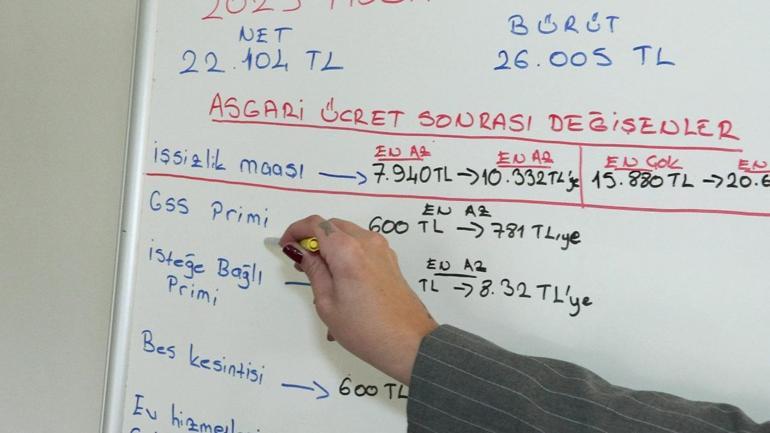 NET
BÜRÜT
22.104 TL
26.005 TL
ASGARİ ÜCRET SONRASI DEĞİŞENLER
EN AZ EN AZ EN ÇOK EN
işsizlik maası → 7.940 TL → 10.332 TL'ye 15.880 TL → 20.6
EN AZ
GSS Primi 600 TL → 781 TL'ye
EN AZ
isteğe Bağlı TL → 8.32 TL'ye
Primi
Bes kesintisi → 600 TL
Ev